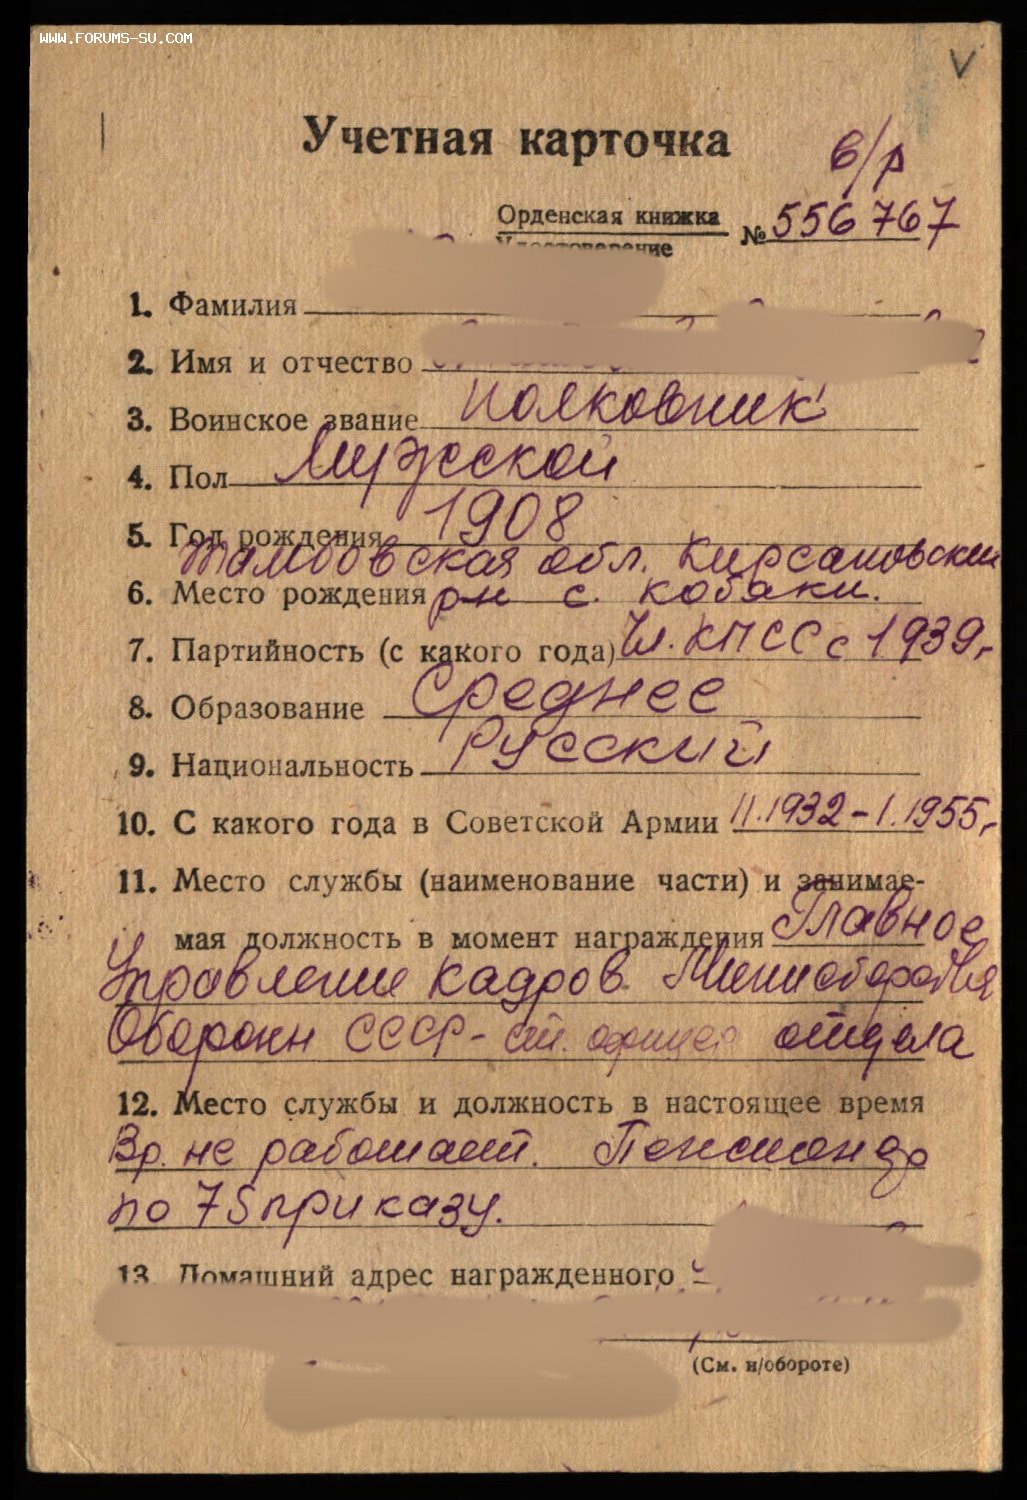 WWW.FORUMS-SU.COM
V
Учетная карточка
б/р
Орденская книжка
Удостоверение
№ 556767
1. Фамилия
2. Имя и отчество
3. Воинское звание полковник
4. Пол Мужской
5. Год рождения 1908
Тамбовская обл. Кирсановский
6. Место рождения рн с. Кобяки.
7. Партийность (с какого года) Чл. КПСС с 1939 г.
8. Образование Среднее
9. Национальность Русский
10. С какого года в Советской Армии 11.1932-1.1955 г.
11. Место службы (наименование части) и занимае-
мая должность в момент награждения Главное
Управление кадров Министерства
Обороны СССР - ст. офицер отдела
12. Место службы и должность в настоящее время
Вр. не работает. Пенсионер
по 75 приказу.
13. Домашний адрес награжденного
(См. н/обороте)